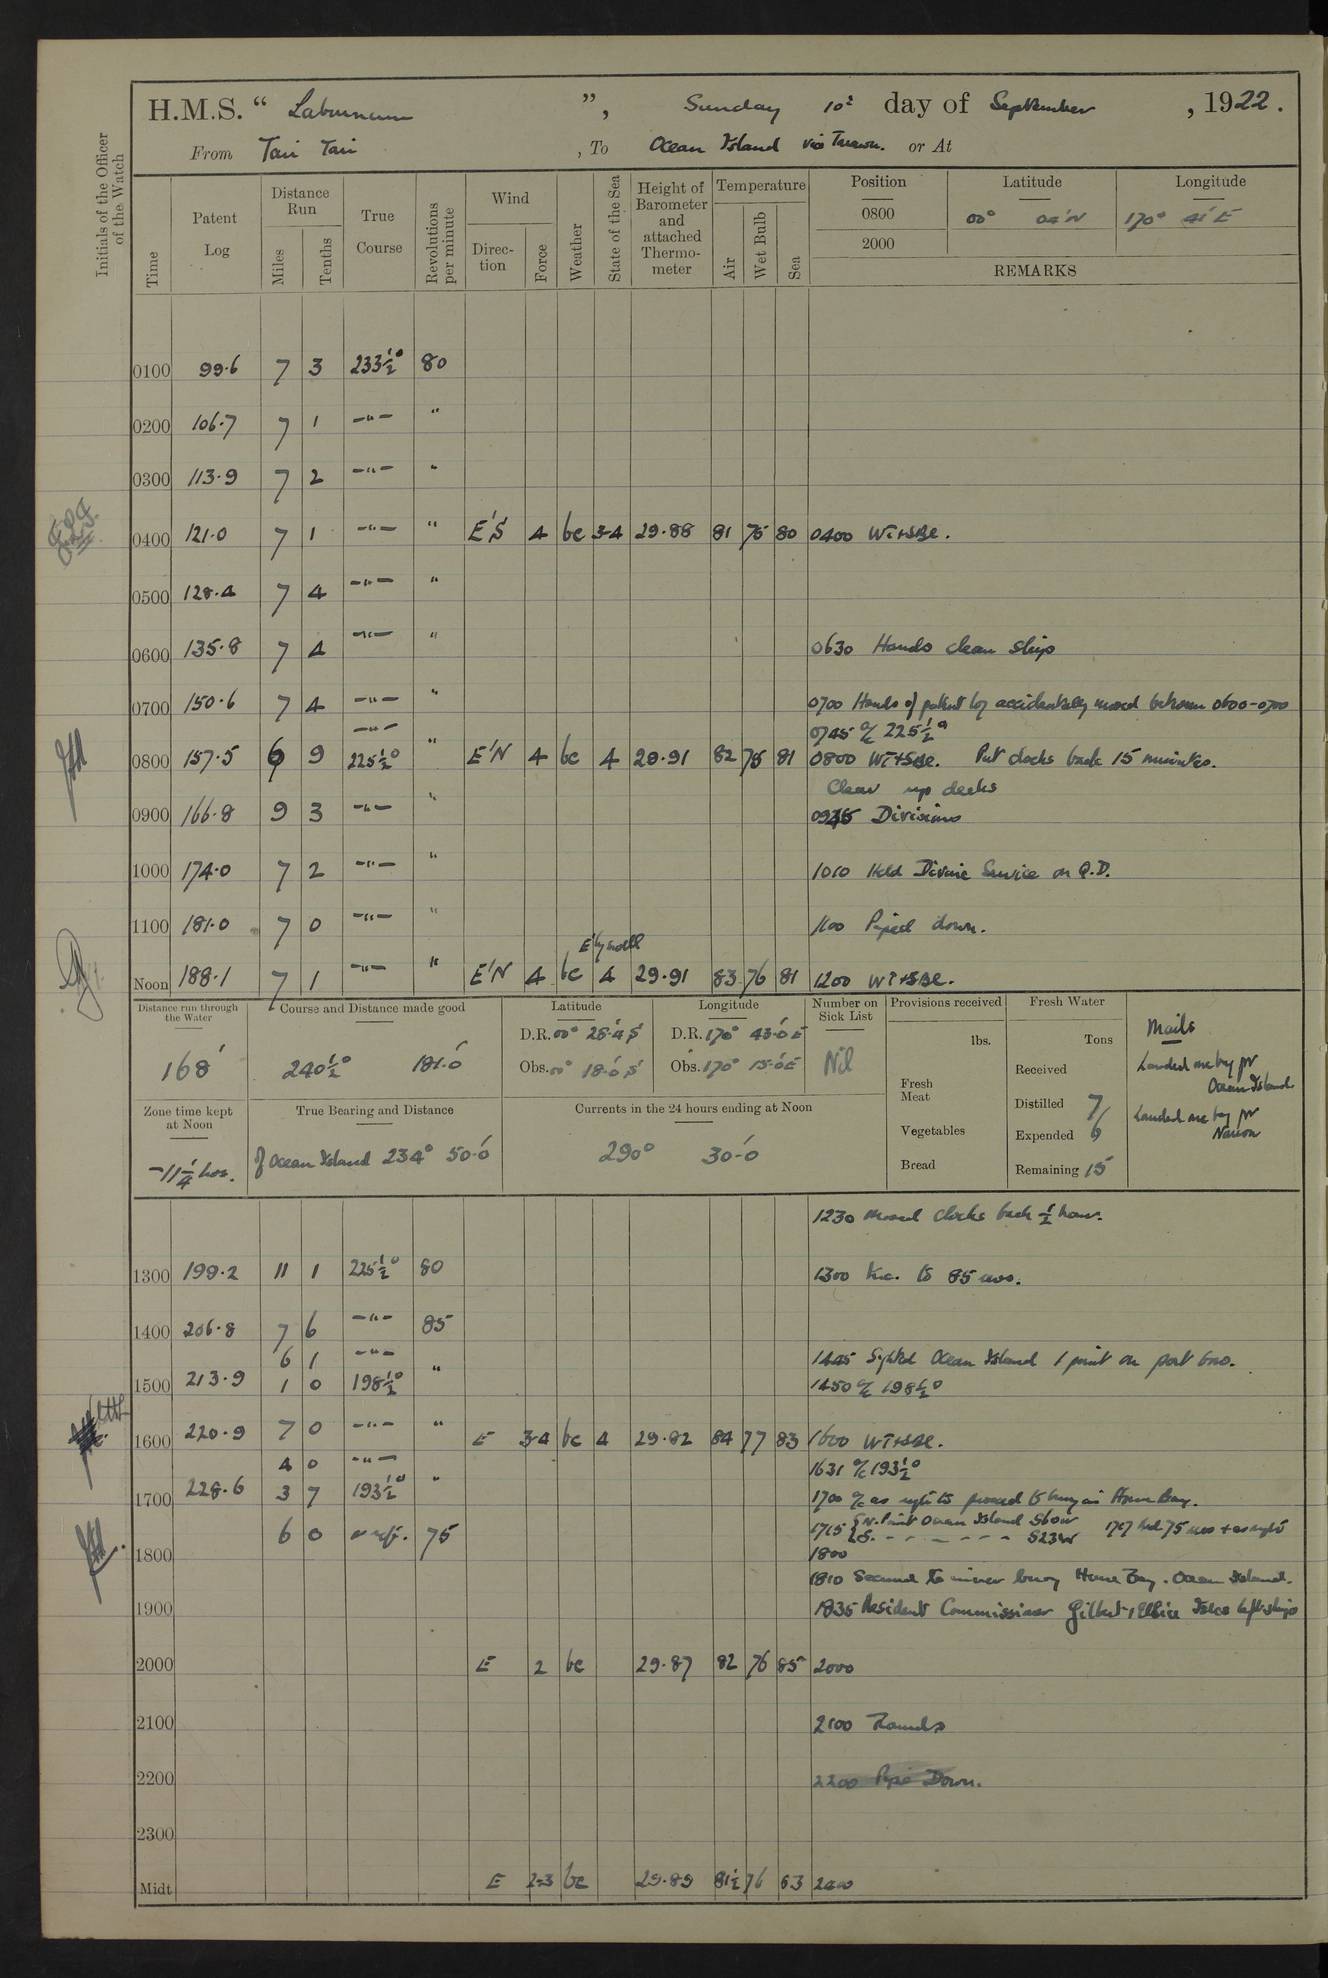 H.M.S. “ Laburnum ”, Sunday 10th day of September , 1922.
From Tari Tari , To Ocean Island via or At
Initials of the Officer of the Watch
Time
Patent Log
Distance Run
Miles
Tenths
True Course
Revolutions per minute
Wind
Direction
Force
Weather
State of the Sea
Height of Barometer and attached Thermometer
Temperature
Air
Wet Bulb
Sea
Position Latitude Longitude
0800 00° 04'N 170° 41'E
2000
REMARKS
0100 99.6 7 3 233½° 80
0200 106.7 7 1 —"— "
0300 113.9 7 2 —"— "
0400 121.0 7 1 —"— " E'S 4 bc 3-4 29.88 81 75 80 0400
0500 128.4 7 4 —"— "
0600 135.8 7 4 —"— " 0630 Hands clean ship
0700 150.6 7 4 —"— " 0700 Hands of patent log accidentally moved between 0600-0700
—"— 0745 a/c 225½°
0800 157.5 6 9 225½° " E'N 4 bc 4 29.91 82 75 81 0800 Put clocks back 15 minutes.
Clear up decks
0900 166.8 9 3 —"— " 0945 Divisions
1000 174.0 7 2 —"— " 1010 Held Divine Service on Q.D.
1100 181.0 7 0 —"— " 1100 Piped down.
E'ly swell
Noon 188.1 7 1 —"— " E'N 4 bc 4 29.91 83 76 81 1200
Distance run through the Water
168'
Course and Distance made good
240½° 181.0'
Latitude
D.R. 00° 28.4'S
Obs. 00° 18.0'S
Longitude
D.R. 170° 43.0'E
Obs. 170° 15.0'E
Number on Sick List
Nil
Provisions received
lbs.
Fresh Meat
Vegetables
Bread
Fresh Water
Tons
Received
Distilled 7
Expended 6
Remaining 15
Mails
Landed one bag for
Ocean Island
Landed one bag for
Nauru
Zone time kept at Noon
-11¼ hrs.
True Bearing and Distance
of Ocean Island 234° 50.0'
Currents in the 24 hours ending at Noon
290° 30.0'
1230 Moved clocks back ½ hour.
1300 199.2 11 1 225½° 80 1300 Inc. to 85 revs.
1400 206.8 7 6 —"— 85
6 1 —"— 1445 Sighted Ocean Island 1 point on port bow.
1500 213.9 1 0 198½° " 1450 a/c 198½°
1600 220.9 7 0 —"— " E 3-4 bc 4 29.82 84 77 83 1600
4 0 —"— 1631 a/c 193½°
1700 228.6 3 7 193½° " 1700 a/c as req. to proceed to buoy in Home Bay.
6 0 as req. 75 1715 { N. Point Ocean Island S60W 1717 Red 75 revs & as reqte
S. - - - - - - S23W
1800 1800
1810 Secured to inner buoy Home Bay. Ocean Island.
1900 1835 Resident Commissioner Gilbert & Ellice Isles left ship
2000 E 2 bc 29.87 82 76 85 2000
2100 2100 Rounds
2200 2200 Pipe Down.
2300
Midt E 2-3 bc 29.89 81½ 76 83 2400